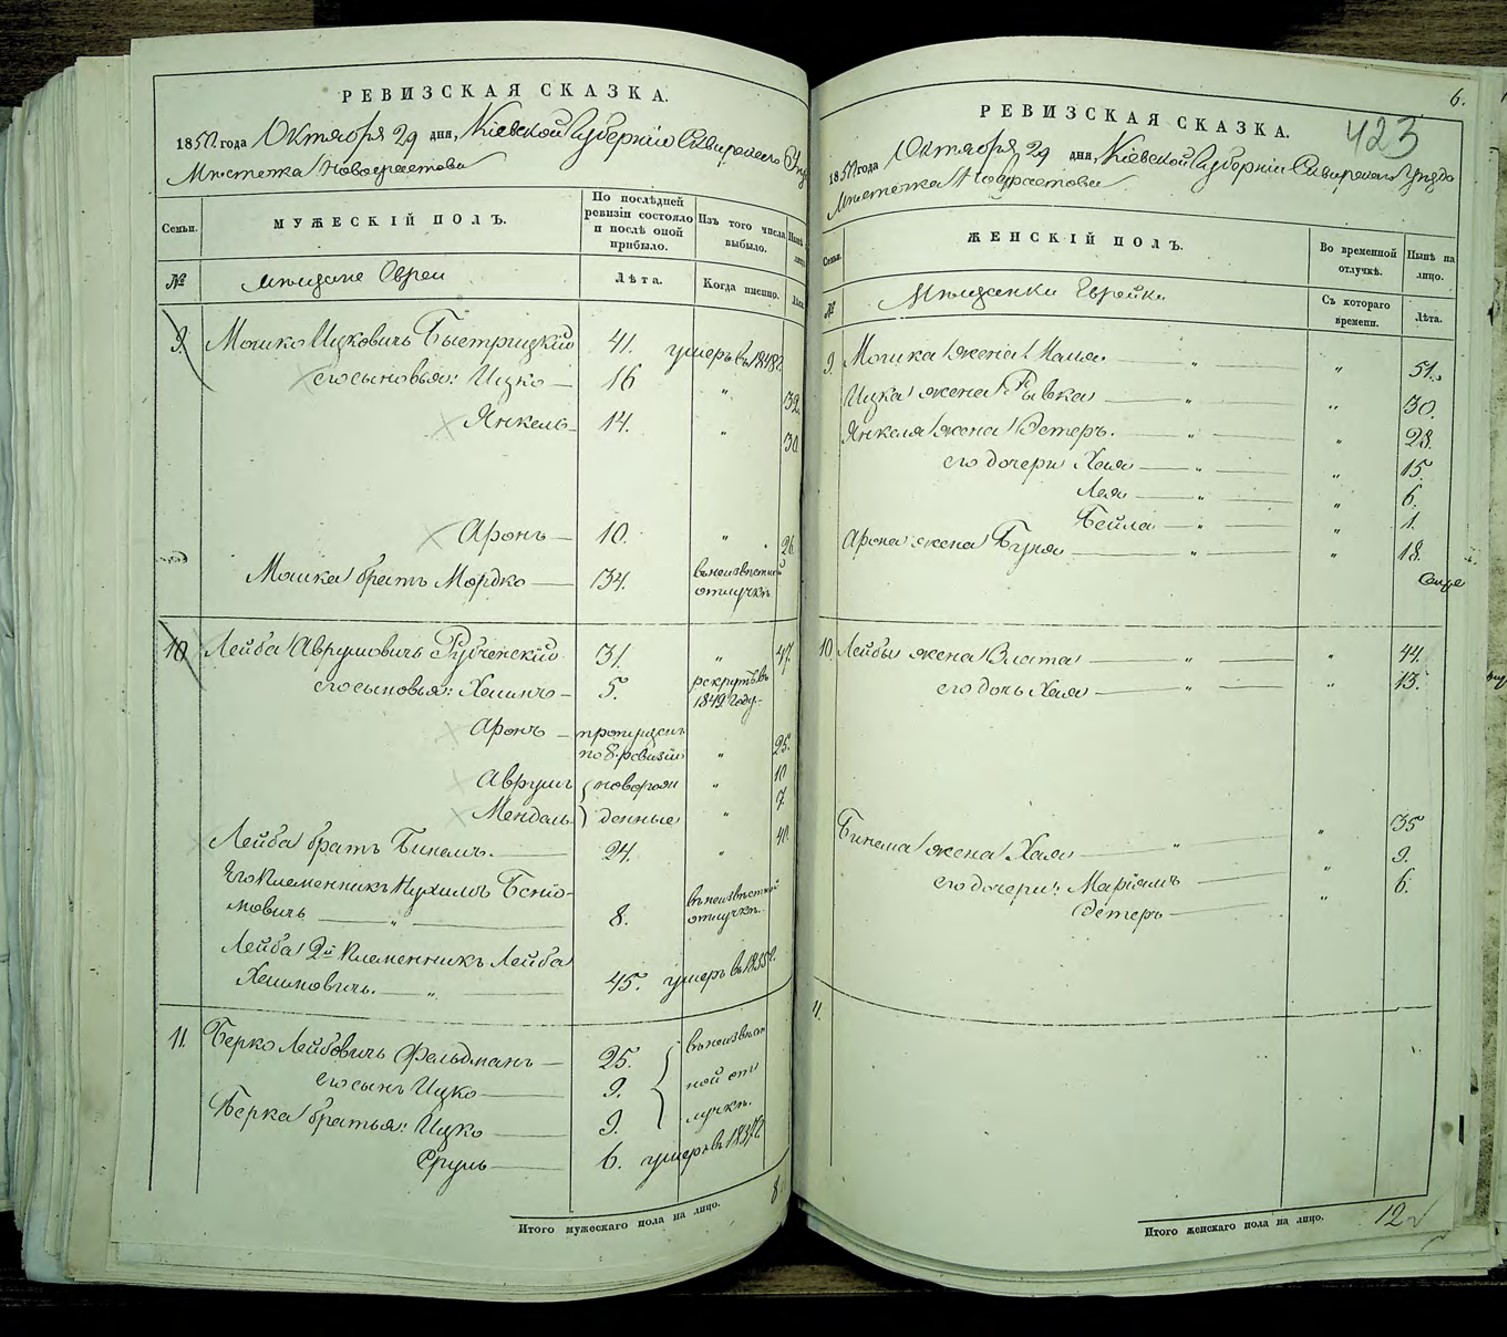 РЕВИЗСКАЯ СКАЗКА.
1850 года Октября 29 дня, Кіевской Губерніи Сквирскаго
Мѣстечка Новохрастова
Семьи.
МУЖЕСКІЙ ПОЛЪ.
По послѣдней ревизіи состояло и послѣ оной прибыло.
Изъ того числа выбыло.
№
мѣщане Евреи
Лѣта.
Когда именно.
9. Мошко Ицковичъ Быстрицкій 41. умеръ въ 1848 г.
его сыновья: Ицко — 16 " 32.
Янкель — 14. " 30
Аронъ — 10. " 26.
Мошка братъ Мордко — 34. въ неизвѣстной
отлучкѣ
10. Лейба Аврумовичъ Рубченскій 31. " 47.
его сыновья: Хаимъ — 5. рекрутъ въ
1849 году
Аронъ — пропущенъ
по 8. ревизіи " 25.
Аврумъ { новорож " 10
Мендель } денные " 7.
Лейба братъ Бинемъ. — 24. " 40.
Его племенникъ Нухимъ Беніо-
мовичъ — " — 8. въ неизвѣстной
отлучкѣ.
Лейба 2й племенникъ Лейба
Хаимовичъ. — " — 45. умеръ въ 1835 г.
11. Берко Лейбовичъ Фельдманъ — 25. въ неизвѣст
его сынъ Ицко — 9. ной от
Берка братья: Ицко — 9. лучкѣ.
Сруль — 6. умеръ въ 1837 г.
Итого мужескаго пола на лицо. 8
6.
423
РЕВИЗСКАЯ СКАЗКА.
1850 года Октября 29 дня, Кіевской Губерніи Сквирскаго Уѣзда
Мѣстечка Новохрастова
Семьи.
ЖЕНСКІЙ ПОЛЪ.
Во временной отлучкѣ.
Нынѣ на лицо.
№
Мѣщанки Еврейки
Съ котораго времени.
Лѣта.
9. Мошка жена Маня — " — " 51.
Ицка жена Рывка — " — " 30.
Янкеля жена Эстеръ. — " — " 28.
его дочери Хая — " — " 15.
Лея — " — " 6.
Бейла — " — " 1.
Арона жена Буня — " — " 18.
10. Лейбы жена Злата — " — " 44.
его дочь Хая — " — " 13.
Бинема жена Хая — " — " 35
его дочери: Маріямъ — " 9.
Эстеръ — " 6.
11.
Итого женскаго пола на лицо. 12